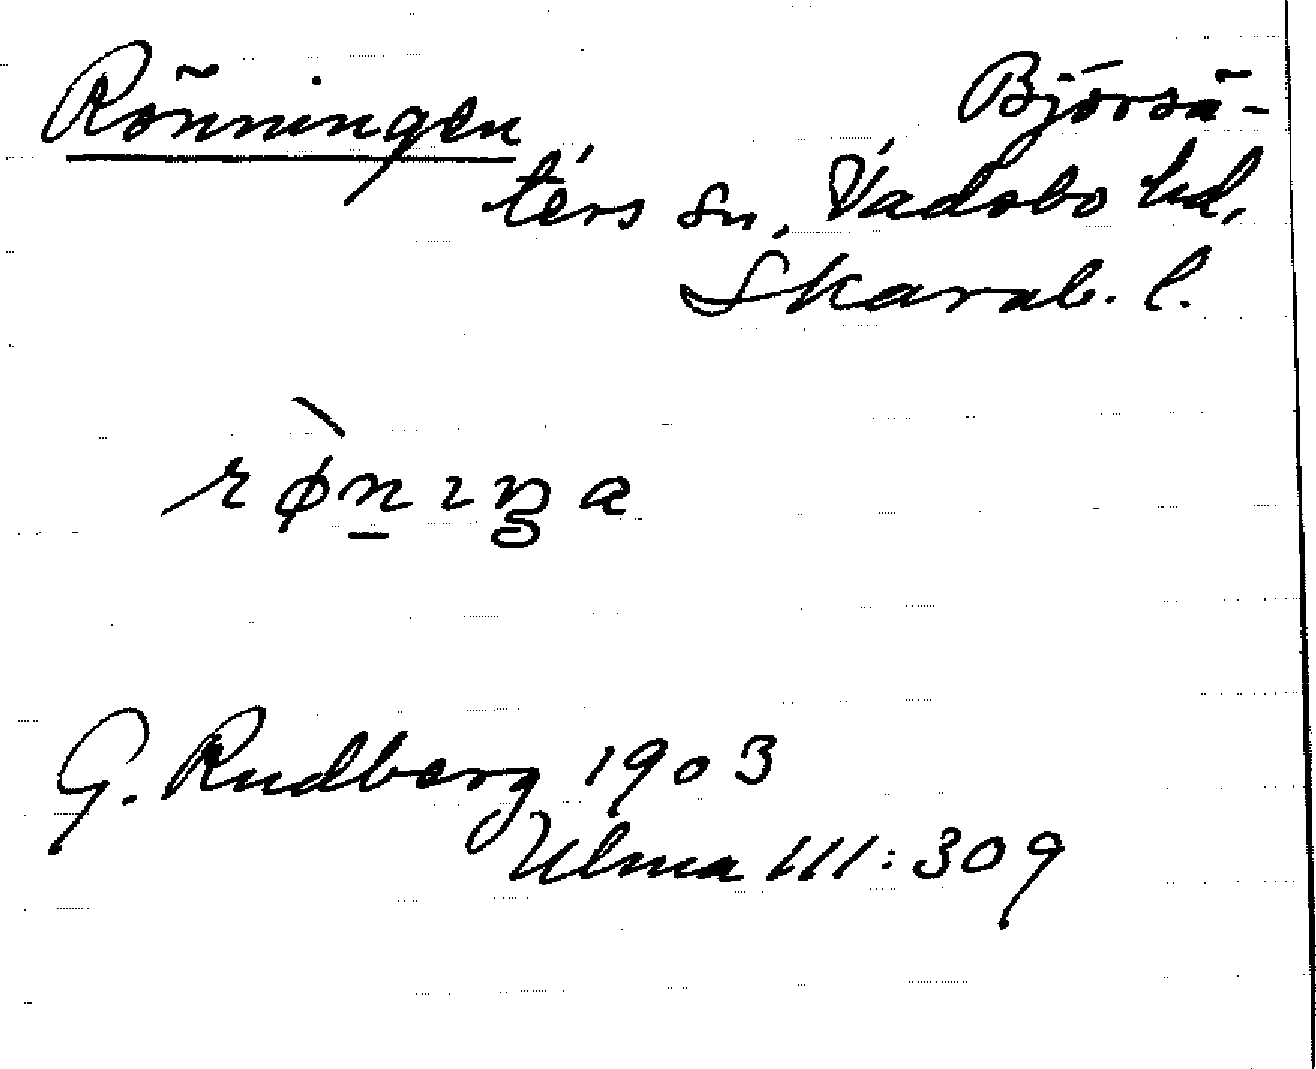 Rönningen Björsä-
ters sn, Vadsbo hd,
Skarab. l.
rø̀n̲ɪŋa
G. Rudberg 1903
Ulma 111:309